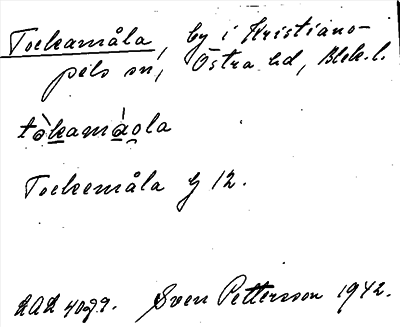 Tockamåla, by i Kristiano-
pels sn, Östra hd, Blek. l.
tòkamåola
Tockemåla J 12.
Sven Petterson 1942.